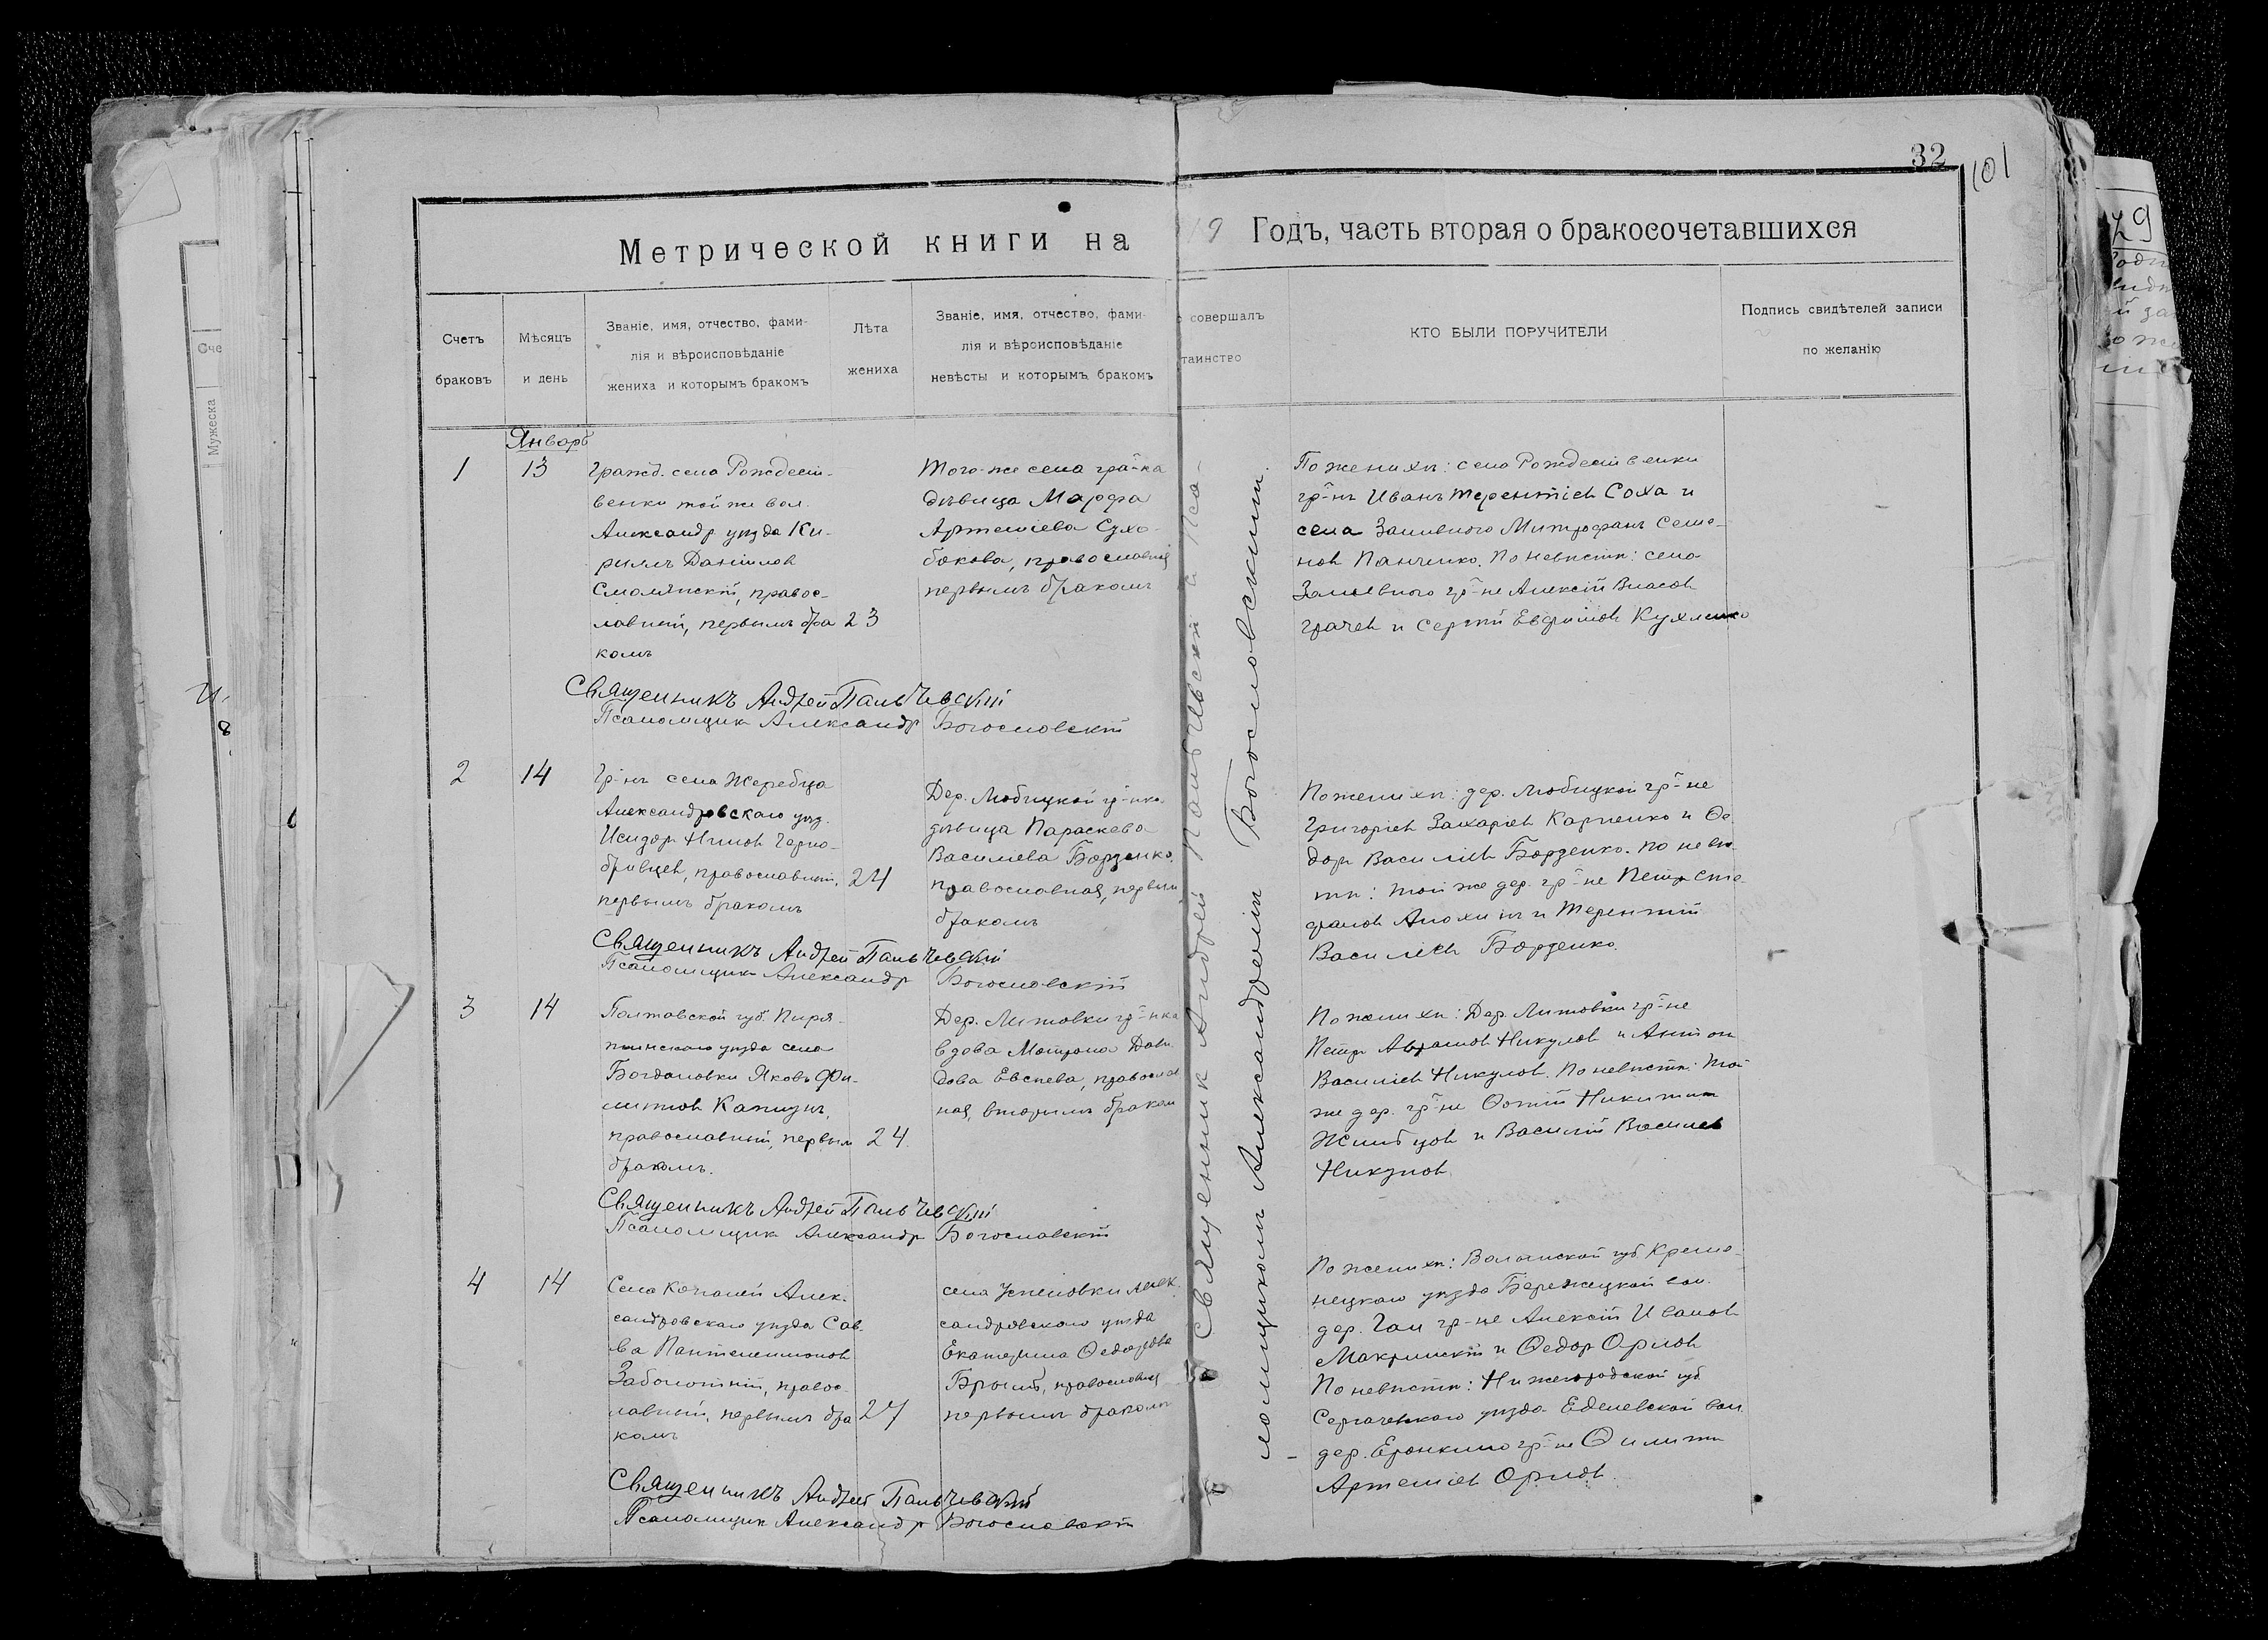 32
101
Метрической книги на 19 Годъ, часть вторая о бракосочетавшихся
Счетъ
браковъ
Мѣсяцъ
и день
Званіе, имя, отчество, фами-
лія и вѣроисповѣданіе
жениха и которымъ бракомъ
Лѣта
жениха
Званіе, имя, отчество, фами-
лія и вѣроисповѣданіе
невѣсты и которымъ бракомъ
совершалъ
таинство
КТО БЫЛИ ПОРУЧИТЕЛИ
Подпись свидѣтелей записи
по желанію
Январь
1
13
Гражд. села Рождест-
венки той же вол.
Александр. уѣзда Ки-
риллъ Даніилов
Смолянскій, правос-
лавный, первымъ бра
комъ
23
Того-же села гр-ка
дѣвица Марфа
Артеміева Сухо-
бокова, православная
первымъ бракомъ
По женихѣ: села Рождественки
гр-нъ Иванъ Терентіев Соха и
села Заливного Митрофанъ Семе-
нов Панченко. По невѣстѣ: села
Заливного гр-не Алексій Власов
Грачев и Сергій Евфимов Кухленко
Священникъ Андрей Пальчевскій
Псаломщик Александр Богословскій
2
14
Гр-нъ села Жеребца
Александровскаго уѣз.
Исидор Нилов Черно-
бривцев, православный,
первымъ бракомъ
24
Дер. Любицкой гр-нка
дѣвица Параскева
Василіева Борзенко,
православная, первым
бракомъ
По женихѣ: дер. Любицкой гр-не
Григоріев Захаріев Карпенко и Ѳе
дор Василіев Борзенко. По невѣ-
стѣ: той же дер. гр-не Петр Сте-
фанов Алохин и Терентій
Василіев Борзенко.
Священникъ Андрей Пальчевскій
Псаломщик Александр Богословскій
3
14
Полтавской губ. Пиря-
тинскаго уѣзда села
Богдановки Яковъ Фи-
липпов
православный, первым
бракомъ.
24
Дер. Литовки гр-нка
вдова Матрона Дави
дова Евсеева, правосла
ная, вторымъ браком
По женихѣ: Дер. Литовки гр-не
Петр Аврамов Никулов и Антон
Василіев Никулов. По невѣстѣ: той
же дер. гр-не Фотій Никитин
Жильцов и Василій Василев
Никулов.
Священникъ Андрей Пальчевскій
Псаломщик Александр Богословскій
4
14
Села Копаней Алек-
сандровскаго уѣзда Сав-
ва Пантелеимонов
Заболотній, правос-
лавный, первымъ бра
комъ
27
села Успеновки Алек-
сандровскаго уѣзда
Екатерина Ѳедорова
православная
первымъ бракомъ
По женихѣ: Волынской губ. Креме-
нецкаго уѣзда Бережецкой вол.
дер. Гаи гр-не Алексій Иванов
Макринскій и Ѳедор Орлов
По невѣстѣ: Нижегородской губ.
Сергачевскаго уѣзда Еделевской вол.
дер. Еронкино гр-не Филипп
Артеміев Орлов.
Священникъ Андрей Пальчевскій
Псаломщик Александр Богословскій
Священник Андрей Пальчевскій с Пса-
ломщиком Александром Богословским.